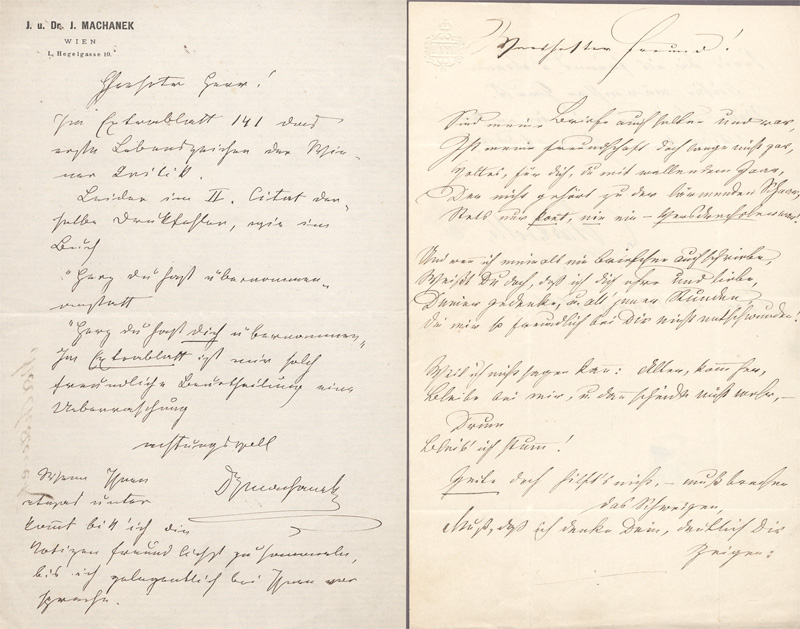 J. u. Dr. J. MACHANEK
WIEN
I., Hegelgasse 10.
Geehrter Herr!
Im Extrablatt 141 das
erste Lebenszeichen der Wie-
ner Kritik.
Leider im II. Citat der-
selbe Druckfehler, wie im
Buch
"Herz du hast übernommen"
anstatt
"Herz du hast dich übernommen"
Im Extrablatt ist mir solch
freundliche Beurtheilung eine
Ueberraschung
achtungsvoll
Dr Machanek
Wenn Ihnen
etwas unter
kommt bitt ich die
Notizen freundlichst zu sammeln,
bis ich gelegentlich bei Ihnen vor
spreche.
Verehrter Freund!
Sind meine Briefe auch selten und rar,
Ist meine Freundschaft doch lange nicht gar,
für dich, du mit wallendem Haar,
Der nicht gehört zu der lärmenden Schaar,
Stets nur Poet, nie ein –
Und wenn ich
Weißt Du doch, daß ich dich ehre und liebe,
Deiner gedenke, u. all' jener Stunden
Die mir so freundlich bei Dir nicht entschwunden!
Weil ich nicht sagen kan: Alter, komm her,
Bleibe bei mir, u. dan scheide nicht mehr, –
Drum
Bleib' ich stum!
Heute doch hilft's nicht, – muß brechen
das Schweigen,
Muß, daß ich denke Dein, deutlich Dir
zeigen: